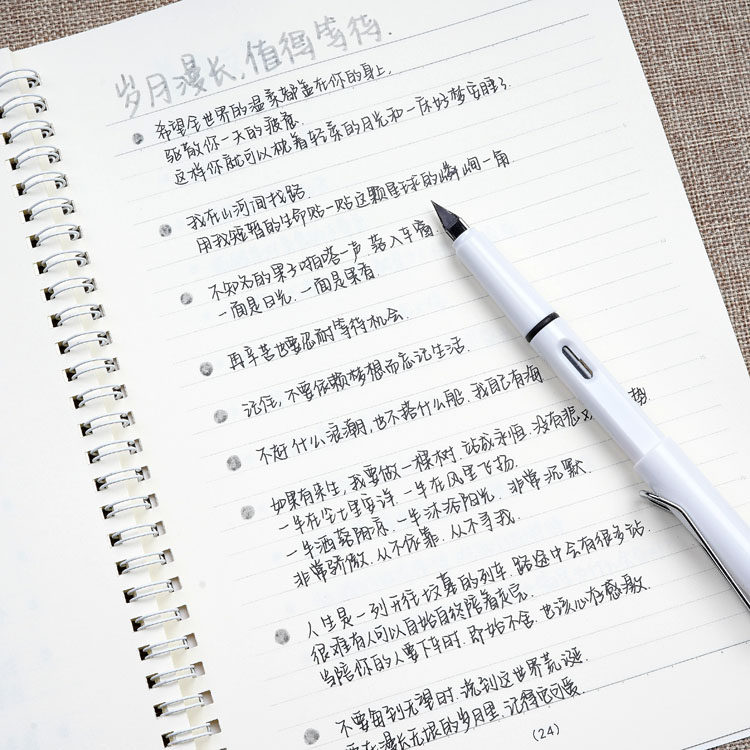 岁月漫长,值得等待.
希望全世界的温柔都盖在你的身上,
驱散你一天的疲惫.
这样你就可以枕着轻柔的月光和一床好梦安睡了
我在山河间找路
用我短暂的生命贴一贴这颗星球的嶙峋一角
不知名的果子啪嗒一声 落入车窗
一面是日光.一面是果香.
再辛苦也要忍耐等待机会.
记住,不要依赖梦想而忘记生活.
不赶什么浪潮,也不搭什么船.我自己有海
如果有来生,我要做一棵树.站成永恒.没有悲 势
一半在尘土里安详 一半在风里飞扬.
一半洒落阴凉.一半沐浴阳光.非常沉默
非常骄傲.从不依靠.从不寻找.
人生是一列开往坟墓的列车.路途中会有很多站.
很难有人可以自始自终陪着走完.
当陪你的人要下车时.即始不舍.也该心存感激.
不要每到无望时.说到这世界荒诞
在漫长无垠的岁月里.记得
(24)